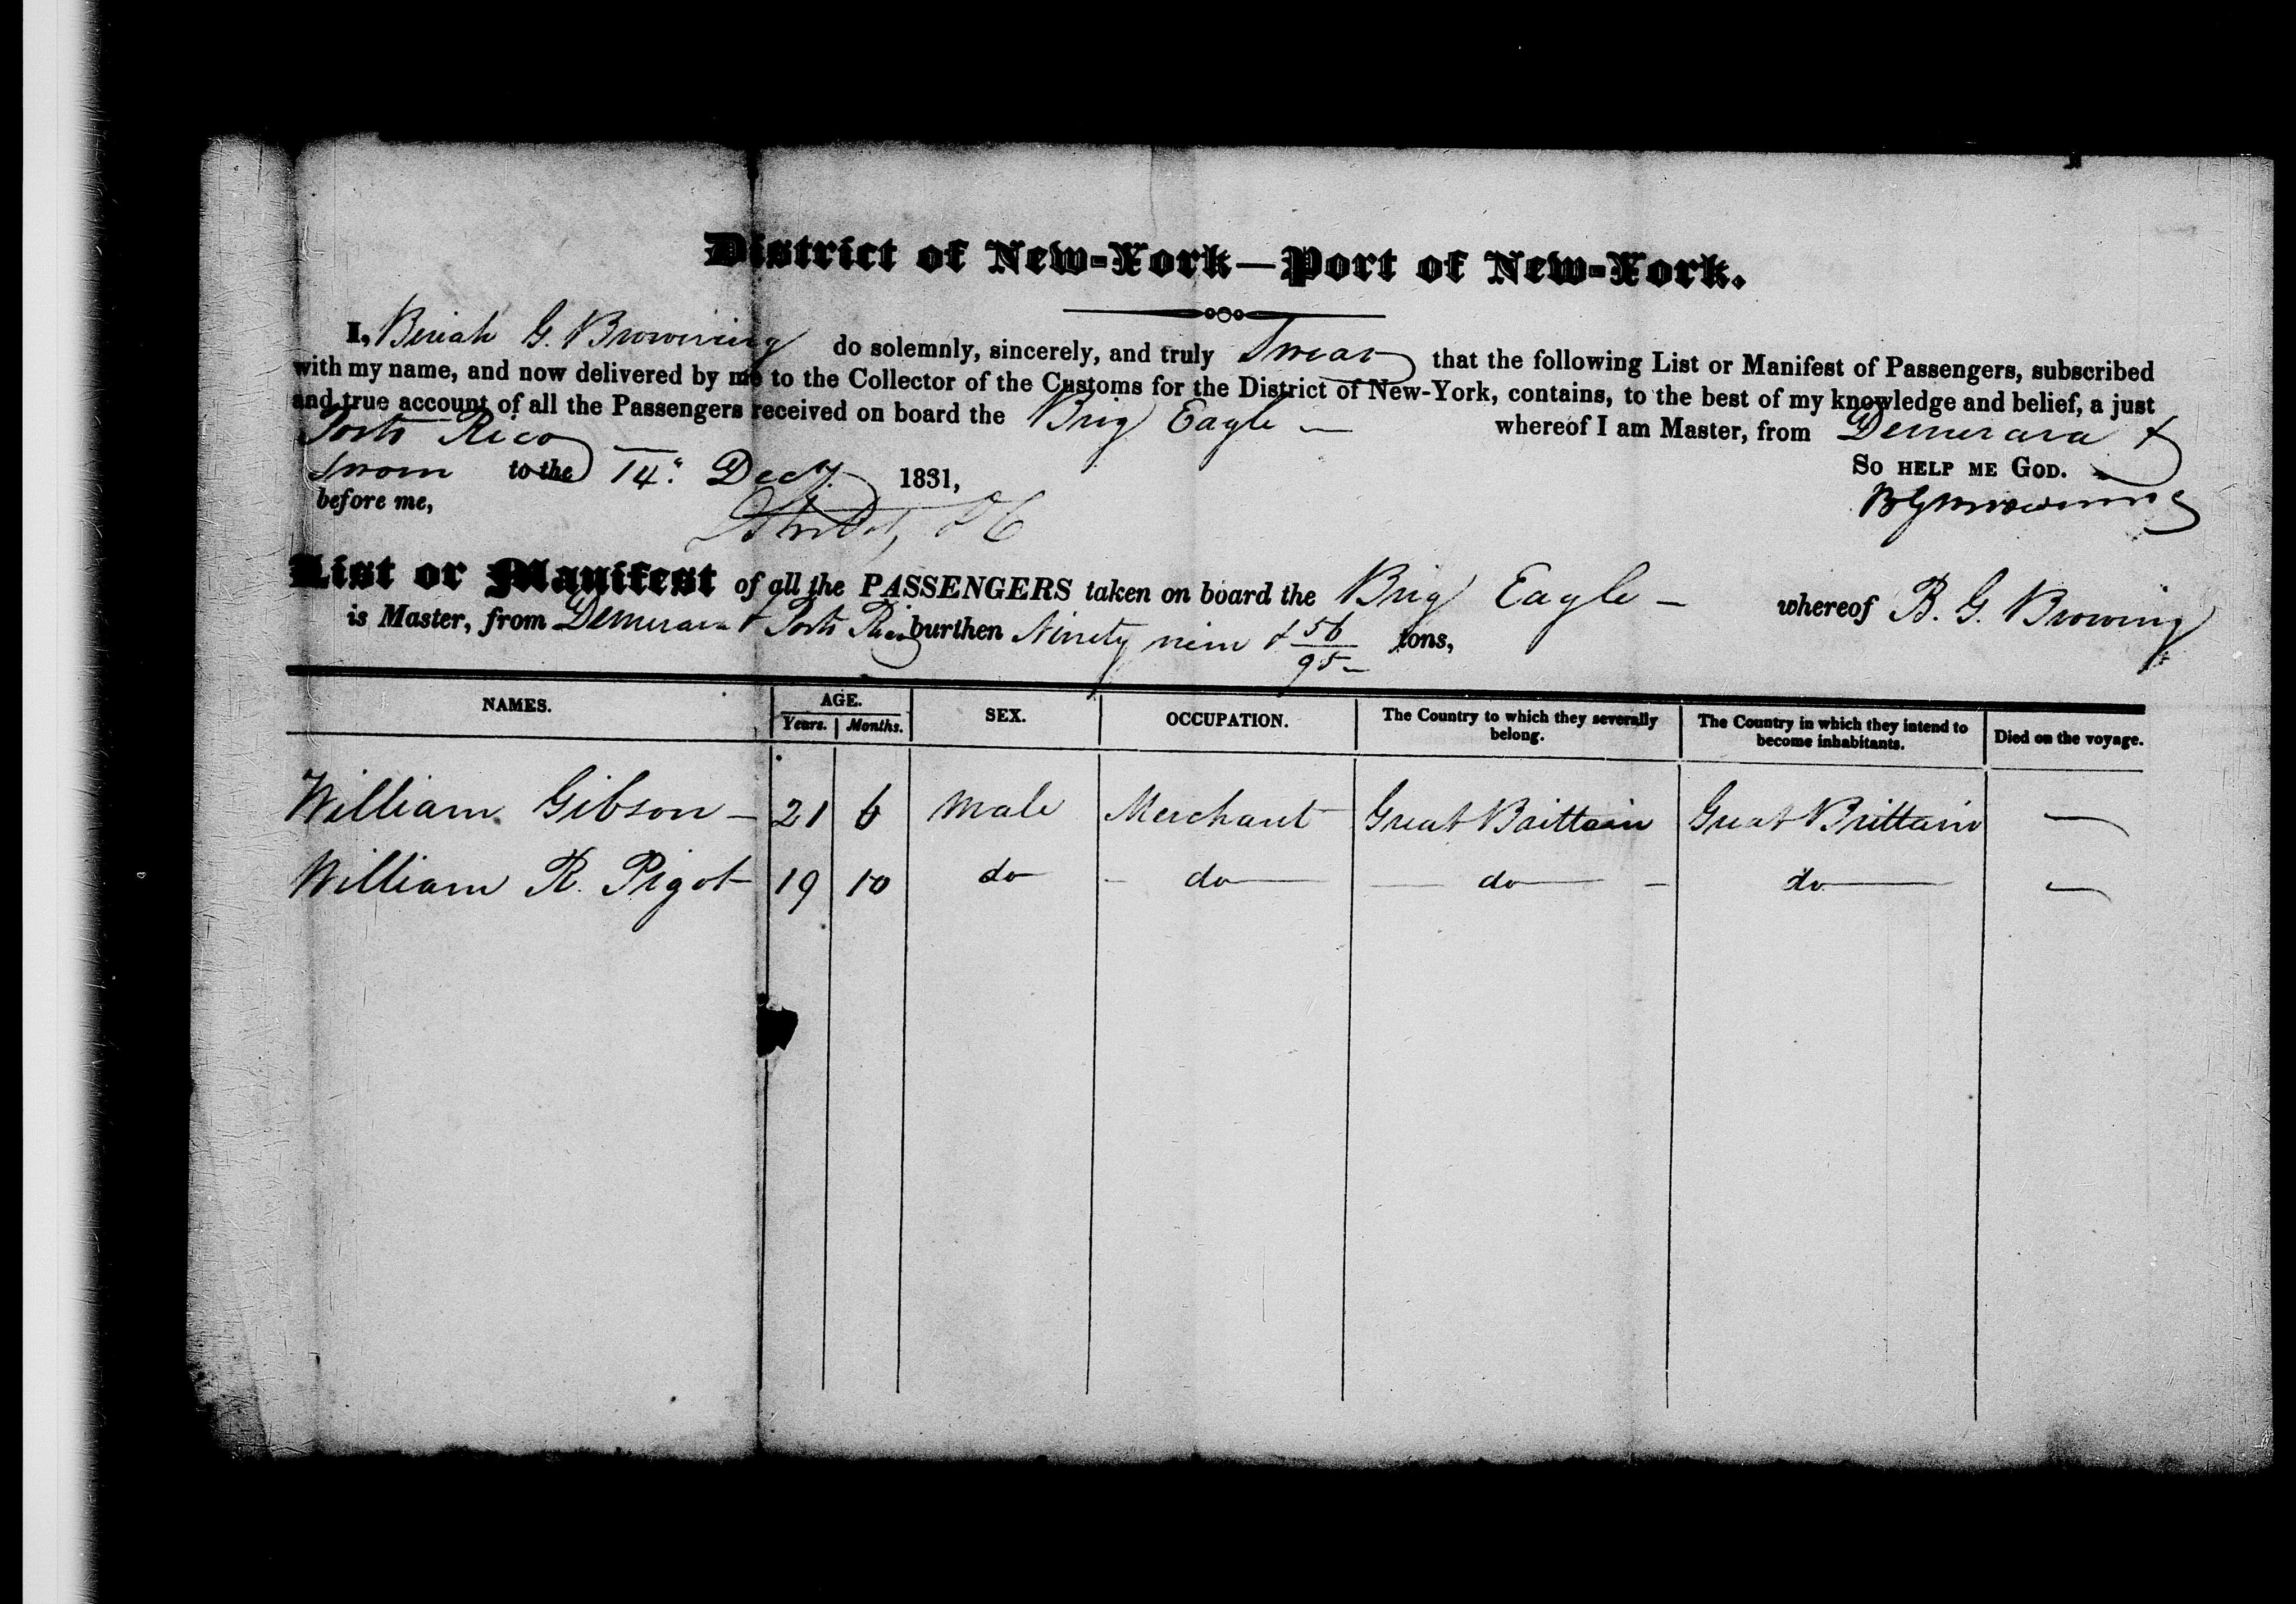 District of New-York—Port of New-York.
I, Beriah G. Browning do solemnly, sincerely, and truly Swear that the following List or Manifest of Passengers, subscribed
with my name, and now delivered by me to the Collector of the Customs for the District of New-York, contains, to the best of my knowledge and belief, a just
and true account of all the Passengers received on board the Brig Eagle — whereof I am Master, from Demerara &
Porto Rico So HELP ME GOD.
Sworn to the 14th Decr. 1831,
before me, BG Browning
List or Manifest of all the PASSENGERS taken on board the Brig Eagle — whereof B. G. Browning
is Master, from Demerara & Porto Rico burthen Ninety nine & 56/95 tons,
NAMES. AGE. Years. Months. SEX. OCCUPATION. The Country to which they severally belong. The Country in which they intend to become inhabitants. Died on the voyage.
William Gibson — 21 6 Male Merchant Great Brittain Great Brittain —
William R. Pigot 19 10 do do do do —